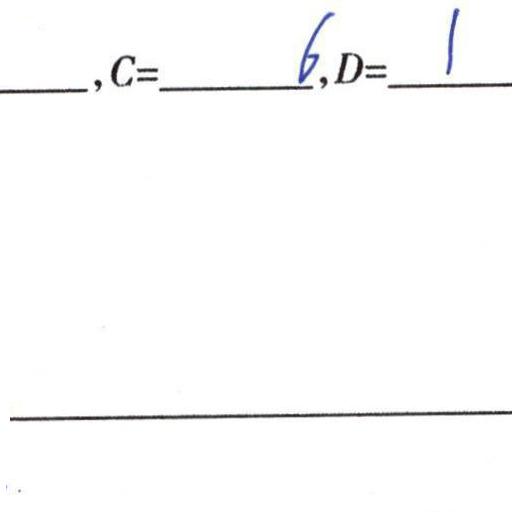 ______, C=______6, D=1______